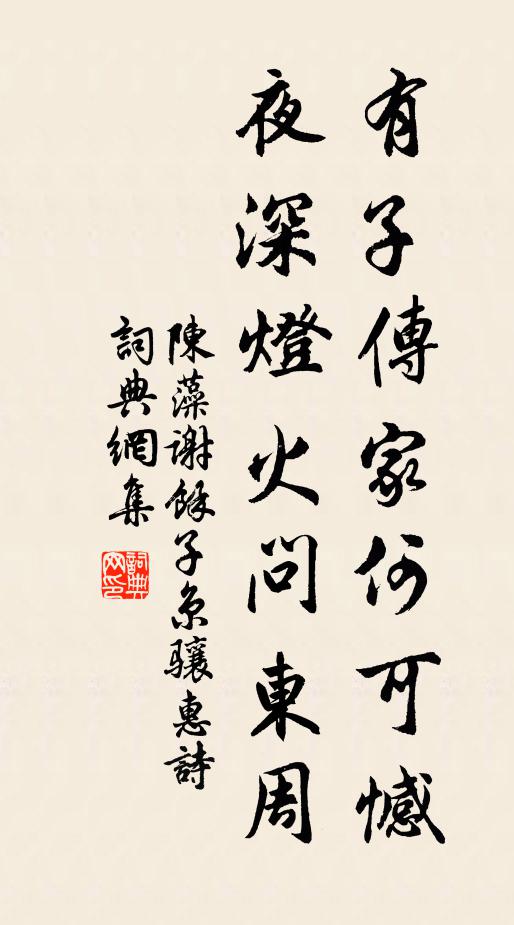 有子傳家何可憾
夜深燈火問東周
陳藻謝餘子京驤惠詩
詞典網集
詞典網印